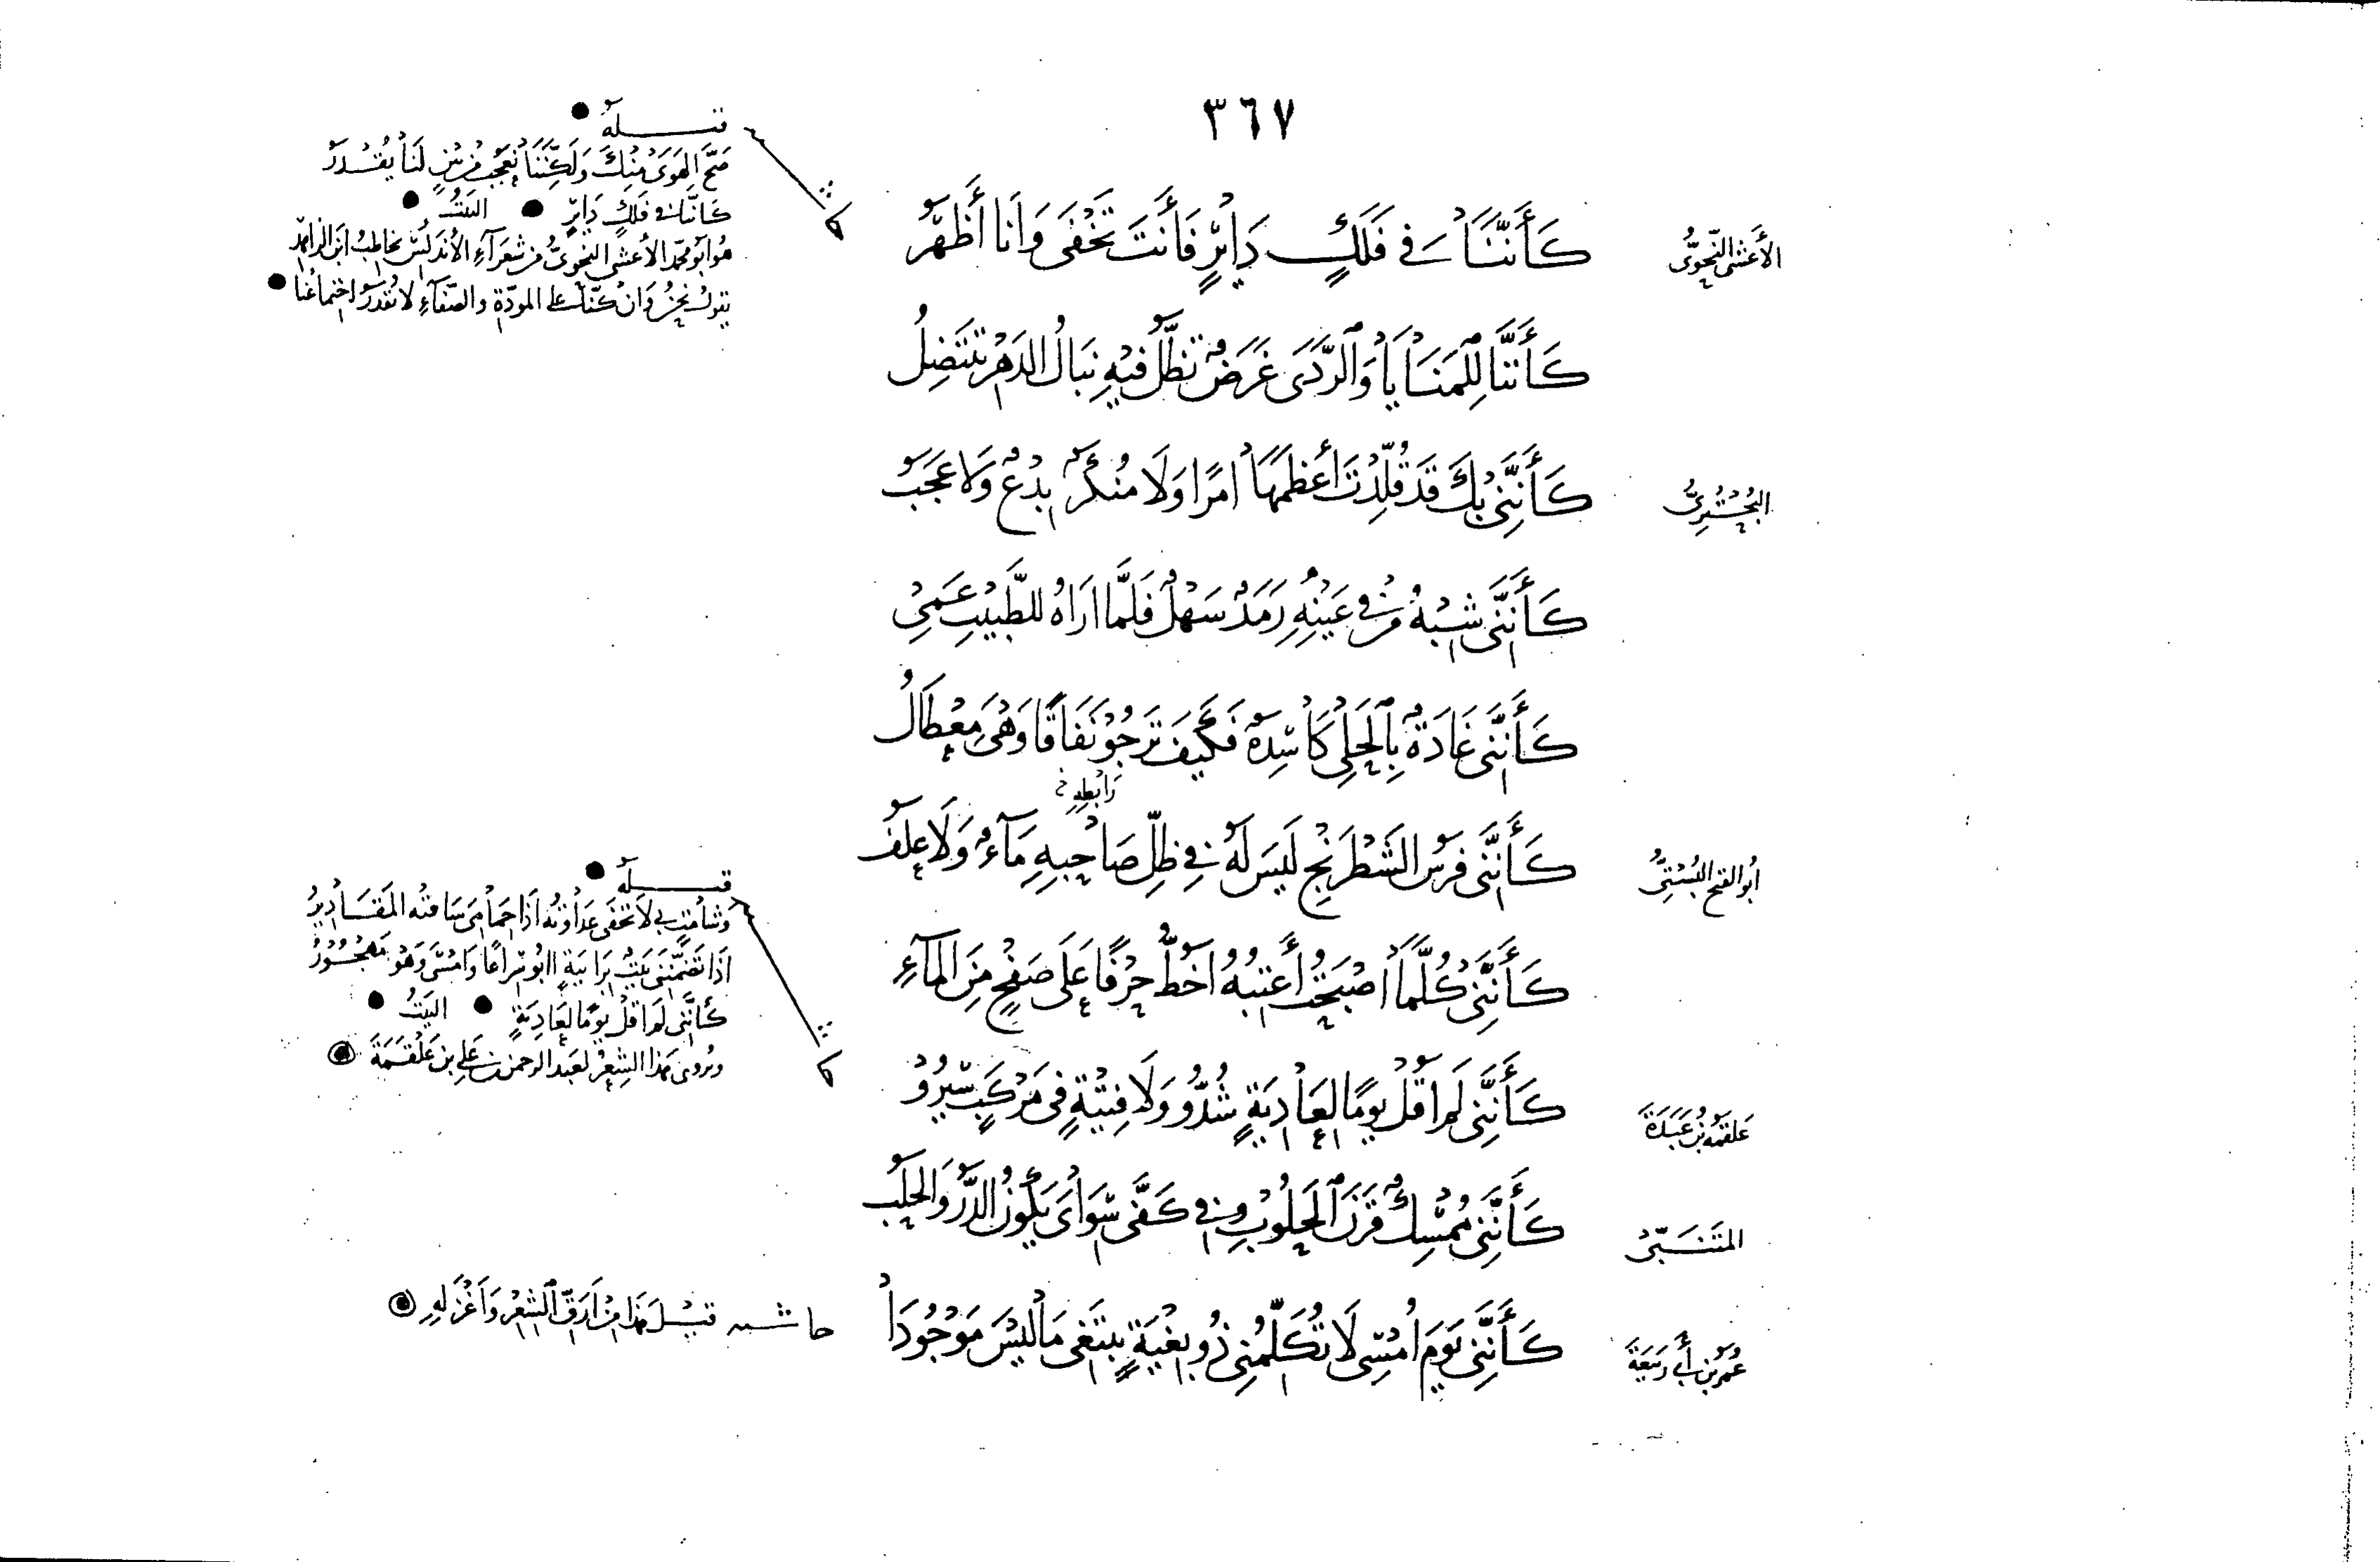 ٣٦٧
الأَعْشَى النَّحْوِيُّ
كَأَنَّنَا فِي فَلَكٍ دَائِرٍ فَأَنْتَ تَخْفَى وَأَنَا أَظْهَرُ
كَأَنَّنَا لِلْمَنَايَا وَالرَّدَى غَرَضٌ تَظَلُّ فِيْهِ نِبَالُ الدَهْرِ تَنْتَضِلُ
البُحْتُرِيُّ
كَأَنَّنِي بِكَ قَدْ قُلِّدْتَ أَعْظَمَهَا امْرًا وَلَا مُنْكَرٌ بِدْعٌ وَلَا عَجَبُ
كَأَنَّنِي شِبْهُ مَنْ فِي عَيْنِهِ رَمَدٌ سَهْلٌ فَلَمَّا ارَاهُ للطَّبِيْبِ عَمِي
كَأَنَّنِي غَادَةٌ بِالْحَلْيِ كَاسِدَةٌ فَكَيْفَ تَرْجُوْ نَفَاقًا وَهْيَ مِعْطَالُ
رَابِطِهِ
أبُو الفتح البُسْتِيُّ
كَأَنَّنِي فَرَسُ الشَطْرَنْجِ لَيْسَ لَهُ فِي ظِلِّ صَاحِبِهِ مَآءٌ وَلَا عَلَفُ
كَأَنَّنِي كُلَّمَا اصْبَحْتُ أَعْتِبُهُ اخُطُّ حَرْفًا عَلَى صَفْحٍ مِنَ المآءِ
عَلقمَة بْن عَبَدَةَ
كَأَنَّنِي لَم اقُلْ يَومًا لِعَادِيَةٍ شُدُّو وَلَا فِتْيَةٍ فِي مَرْكَبٍ سِيْرُوْ
المتَنَبِّي
كَأَنَّنِي مُمْسِكٌ قَرْنَ الْحَلُوْبِ وَفِي كَفَّيْ سِوَايَ يَكُونُ الدَّرُّ وَالحَلَبُ
عُمَر بن أبي رَبيعَةَ
كَأَنَّنِي يَوْمَ امْسِي لَا تُكَلِّمُنِي ذُو بِغْيَةٍ يَبْتَغِي مَا لَيْسَ مَوْجُوْدَا
قبْلهُ
صَحَّ الهَوَى مِنْكَ وَلَكِنَّنَا نَعْجَبُ مِنْ بَيْنٍ لَنَا يُقْدَرُ
كَانَّنا في فَلَكٍ دَايرٍ البَيتُ
هُوَ ابُو محمَّد الأعشى النَّحويُّ من شعَرآءِ الأندلُس يخاطبُ ابنَ الزاهِد
يقولُ نحنُ وَان كنَّا على المودّة والصّفآءِ لا يُقدَرُ اجتماعُنا
قبْلهُ
وَشامِتٍ بي لَا تَخْفَى عَدَاوَتُه اذَا حِمَامِي سَاقتْه المَقَادِيرُ
اذَا تَضَمَّنَنِي بَيْتٌ بِرَابيَةٍ ابُوا سِرَاعًا وَامْسَى وَهوَ مَهْجُوْرُ
كأنَّنِي لَم اقلْ يَومًا لِعَادِيَةٍ البَيْتُ
ويُروى هَذا الشِعْرُ لعَبد الرحمن بن عَلي بن عَلْقَمَةَ
حاشيه قيْلَ هَذا مِنْ ارَقِّ الشِعْر وَاغْزَلِهِ